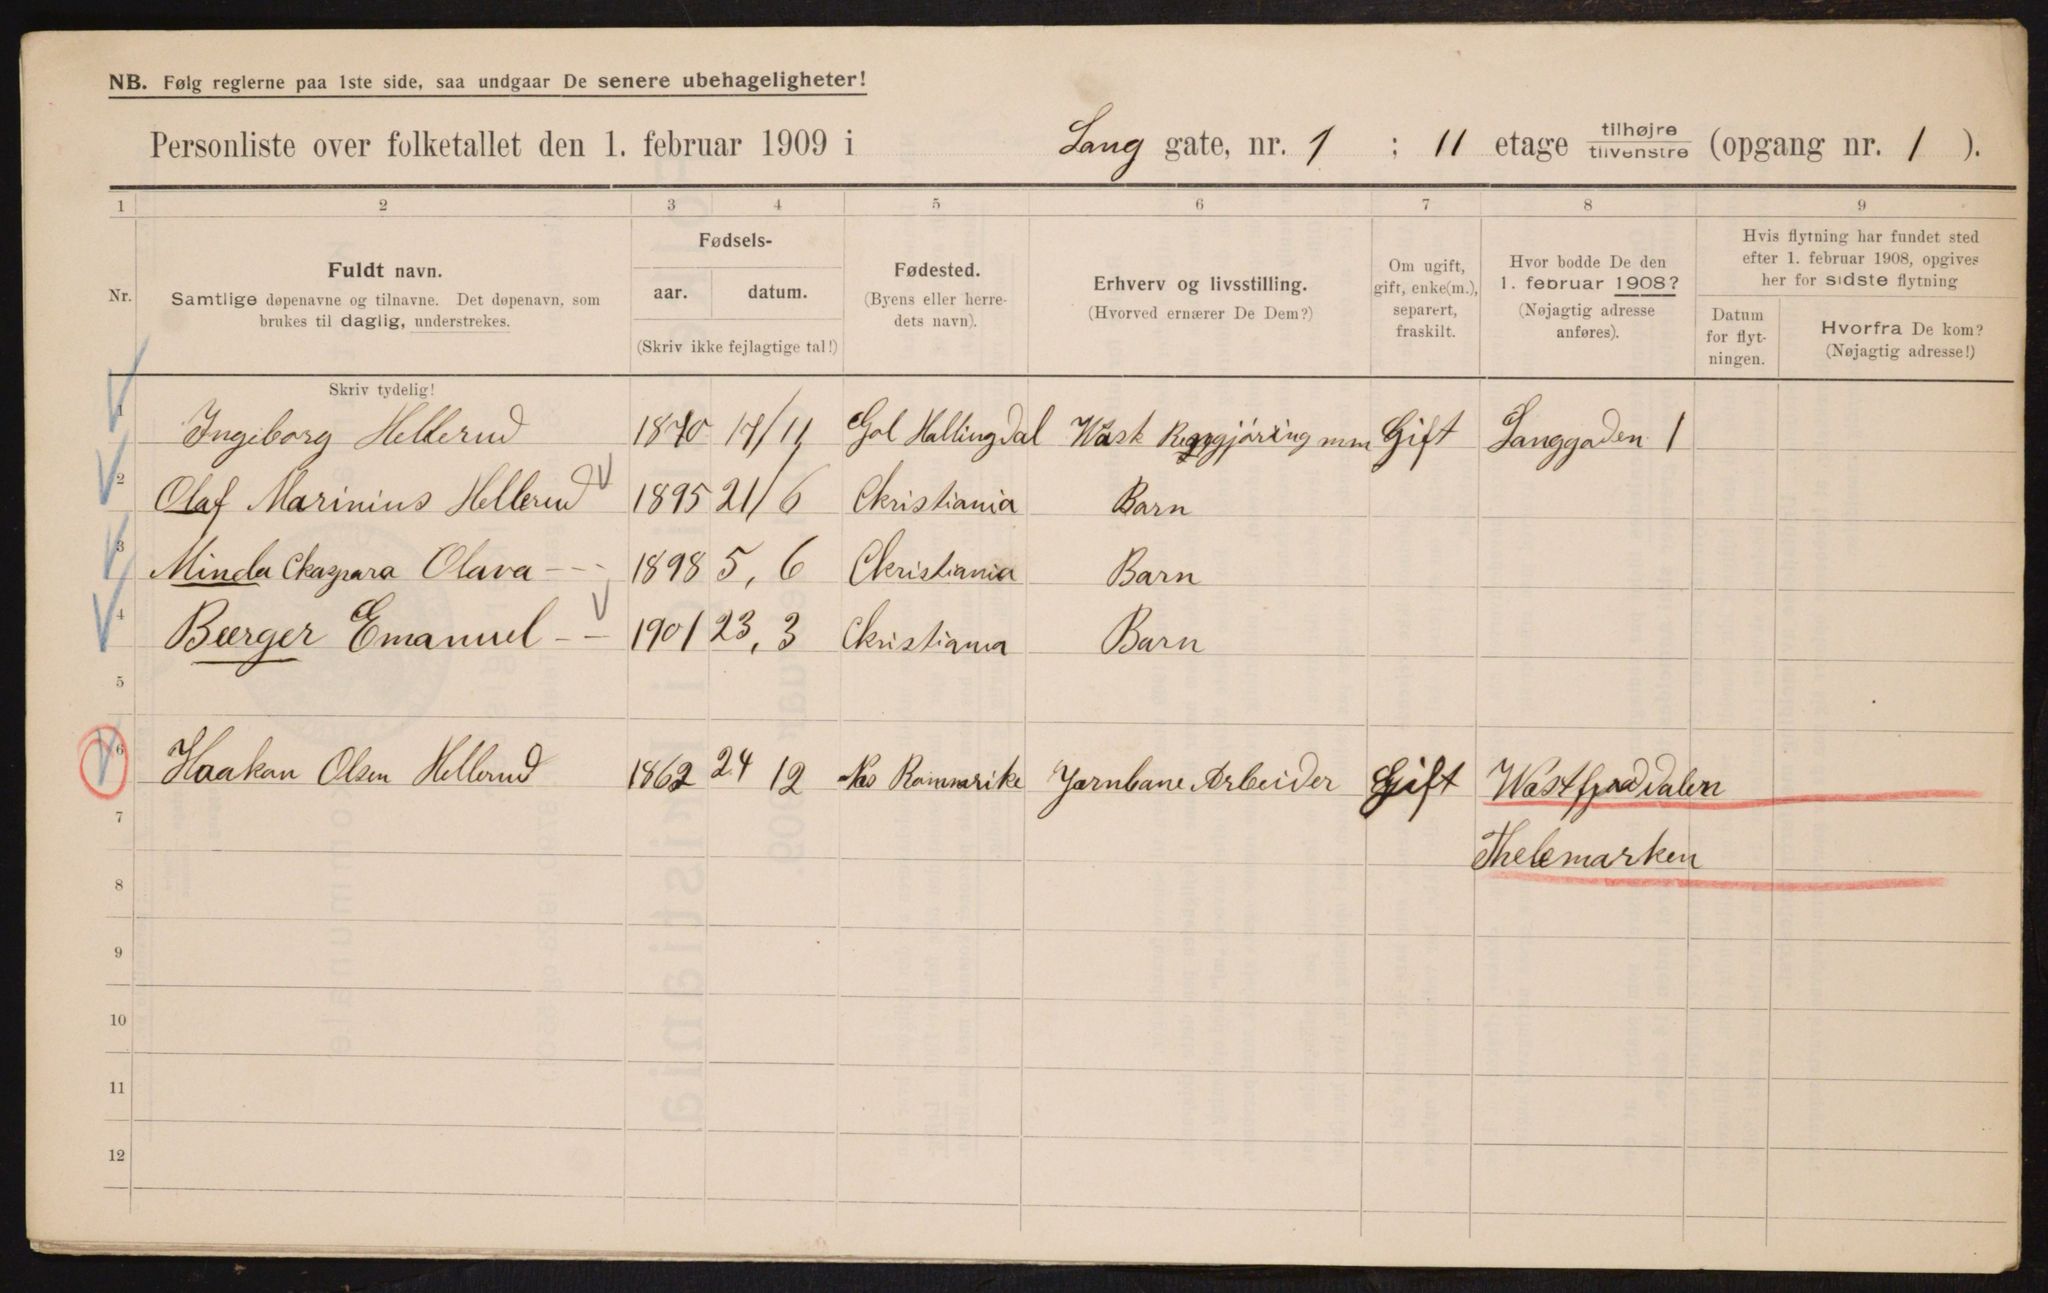 NB. Følg reglerne paa 1ste side, saa undgaar De senere ubehageligheter!
Personliste over folketallet den 1. februar 1909 i Lang gate, nr. 1 ; 11 etage tilhøjre tilvenstre (opgang nr. 1 ).
1 2 3 4 5 6 7 8 9
Nr.
Fuldt navn.
Samtlige døpenavne og tilnavne. Det døpenavn, som
brukes til daglig, understrekes.
Fødsels-
aar. datum.
(Skriv ikke fejlagtige tal!)
Fødested.
(Byens eller herre-
dets navn).
Erhverv og livsstilling.
(Hvorved ernærer De Dem?)
Om ugift,
gift, enke(m.),
separert,
fraskilt.
Hvor bodde De den
1. februar 1908?
(Nøjagtig adresse
anføres).
Hvis flytning har fundet sted
efter 1. februar 1908, opgives
her for sidste flytning
Datum
for flyt-
ningen.
Hvorfra De kom?
(Nøjagtig adresse!)
Skriv tydelig!
1 Ingeborg Hellerud 1870 17/11 Gol Hallingdal Wask Rengjöring mm Gift Langgaden 1
2 Olaf Marinius Hellerud 1895 21/6 Christiania Barn
3 Minda Chaspara Olava - - - 1898 5, 6 Christiania Barn
4 Bærger Emanuel - - 1901 23, 3 Christiania Barn
5
6 Haakon Olsen Hellerud 1862 24 12 Nes Romsarike Jarnbane Arbeider Gift Westfjorddalen
7 Thelemarken
8
9
10
11
12